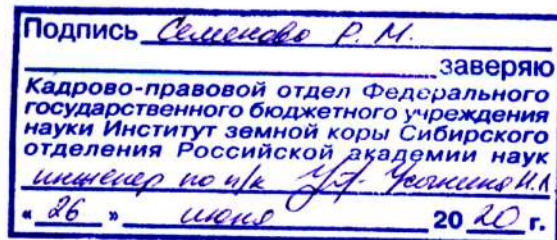 Подпись Семенова Р. М.
заверяю
Кадрово-правовой отдел Федерального
государственного бюджетного учреждения
науки Институт земной коры Сибирского
отделения Российской академии наук
инженер по п/к Н.Л.
« 26 » июня 20 20 г.